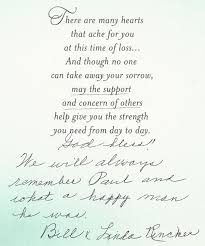 There are many hearts
that ache for you
at this time of loss...
And though no one
can take away your sorrow,
may the support
and concern of others
help give you the strength
you need from day to day.
God bless!!
We will always
remember Paul and
what a happy man
he was.
Bill & Linda